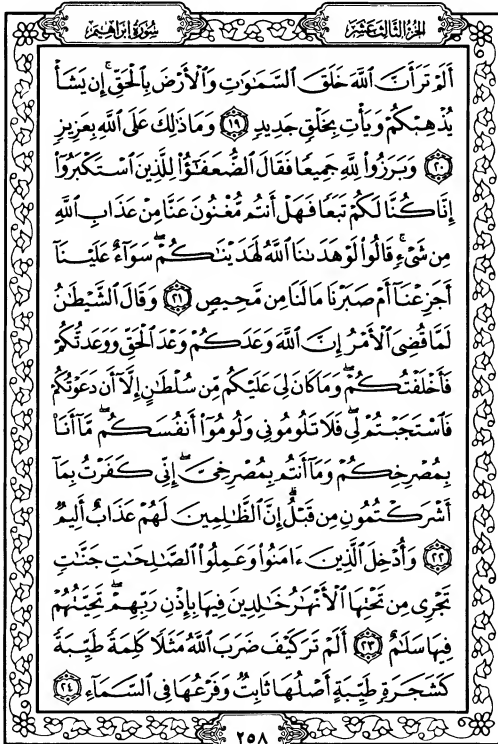 الجزء الثالث عشر
سورة إبراهيم
أَلَمْ تَرَ أَنَّ ٱللَّهَ خَلَقَ ٱلسَّمَٰوَٰتِ وَٱلْأَرْضَ بِٱلْحَقِّ ۚ إِن يَشَأْ
يُذْهِبْكُمْ وَيَأْتِ بِخَلْقٍ جَدِيدٍ ١٩ وَمَا ذَٰلِكَ عَلَى ٱللَّهِ بِعَزِيزٍ
٢٠ وَبَرَزُوا۟ لِلَّهِ جَمِيعًا فَقَالَ ٱلضُّعَفَٰٓؤُا۟ لِلَّذِينَ ٱسْتَكْبَرُوٓا۟
إِنَّا كُنَّا لَكُمْ تَبَعًا فَهَلْ أَنتُم مُّغْنُونَ عَنَّا مِنْ عَذَابِ ٱللَّهِ
مِن شَىْءٍ ۚ قَالُوا۟ لَوْ هَدَىٰنَا ٱللَّهُ لَهَدَيْنَٰكُمْ ۖ سَوَآءٌ عَلَيْنَآ
أَجَزِعْنَآ أَمْ صَبَرْنَا مَا لَنَا مِن مَّحِيصٍ ٢١ وَقَالَ ٱلشَّيْطَٰنُ
لَمَّا قُضِىَ ٱلْأَمْرُ إِنَّ ٱللَّهَ وَعَدَكُمْ وَعْدَ ٱلْحَقِّ وَوَعَدتُّكُمْ
فَأَخْلَفْتُكُمْ ۖ وَمَا كَانَ لِىَ عَلَيْكُم مِّن سُلْطَٰنٍ إِلَّآ أَن دَعَوْتُكُمْ
فَٱسْتَجَبْتُمْ لِى ۖ فَلَا تَلُومُونِى وَلُومُوٓا۟ أَنفُسَكُم ۖ مَّآ أَنَا۠
بِمُصْرِخِكُمْ وَمَآ أَنتُم بِمُصْرِخِىَّ ۖ إِنِّى كَفَرْتُ بِمَآ
أَشْرَكْتُمُونِ مِن قَبْلُ ۗ إِنَّ ٱلظَّٰلِمِينَ لَهُمْ عَذَابٌ أَلِيمٌ
٢٢ وَأُدْخِلَ ٱلَّذِينَ ءَامَنُوا۟ وَعَمِلُوا۟ ٱلصَّٰلِحَٰتِ جَنَّٰتٍ
تَجْرِى مِن تَحْتِهَا ٱلْأَنْهَٰرُ خَٰلِدِينَ فِيهَا بِإِذْنِ رَبِّهِمْ ۖ تَحِيَّتُهُمْ
فِيهَا سَلَٰمٌ ٢٣ أَلَمْ تَرَ كَيْفَ ضَرَبَ ٱللَّهُ مَثَلًا كَلِمَةً طَيِّبَةً
كَشَجَرَةٍ طَيِّبَةٍ أَصْلُهَا ثَابِتٌ وَفَرْعُهَا فِى ٱلسَّمَآءِ ٢٤
٢٥٨